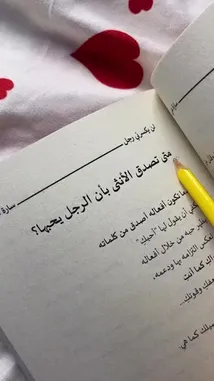 لن يكسرني رجل
سارة
متى تصدق الأنثى بأن الرجل يحبها؟
ما تكون أفعاله أصدق من كلماته
أن يقول لها "أحبكِ"
حبه من خلال أفعاله
التزامه بها ودعمه،
كما أنتِ
كما هي